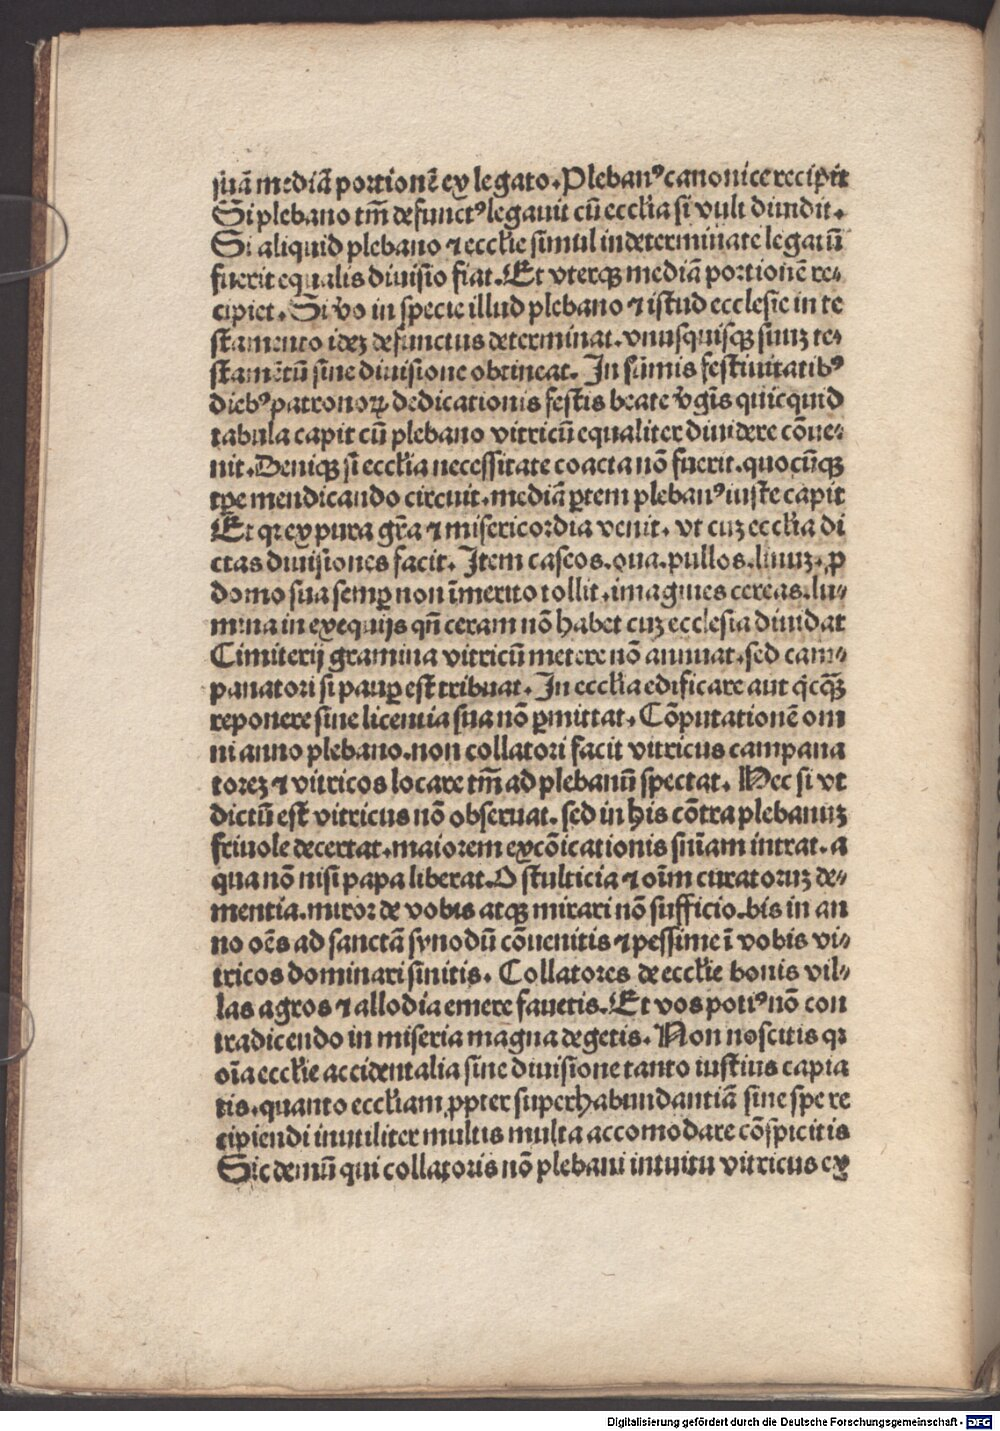 suã mediã portionẽ ex legato. Plebanꝰ canonice recipit
Si plebano tm̃ defunctꝰ legauit cũ eccľia si vult diuidit.
Si aliquid plebano ⁊ eccľie simul indeterminate legatũ
fuerit equalis diuisio fiat. Et vterqꝫ mediã portionẽ re⸗
cipiet. Si v̓o in specie illud plebano ⁊ istud ecclesie in te
stamento ideꝫ defunctus determinat. vnusquisqꝫ suuꝫ te⸗
stamẽtũ sine diuisione obtineat. In sũmis festiuitatibꝰ
diebꝰ patronoꝝ dedicationis festis beate v̓gĩs quicquid
tabula capit cũ plebano vitricũ equaliter diuidere cõue⸗
nit. Deniqꝫ si eccľia necessitate coacta nõ fuerit. quocũqꝫ
tꝑe mendicando circuit. mediã ꝑtem plebanꝰ iuste capit
Et qꝛ ex pura gr̃a ⁊ misericordia venit. vt cuꝫ eccľia di
ctas diuisiones facit. Item caseos. oua. pullos. linuꝫ. ꝓ
domo sua semꝑ non ĩmerito tollit. imagines cereas. lu⸗
mina in exequijs qñ ceram nõ habet cuꝫ ecclesia diuidat
Cimiterij gramina vitricũ metere nõ annuat. sed cam⸗
panatori si pauꝑ est tribuat. In eccľia edificare aut q̇cq̃ꝫ
reponere sine licentia sua nõ ꝑmittat. Cõputationẽ om
ni anno plebano. non collatori facit vitricus campana
toreꝫ ⁊ vitricos locare tm̃ ad plebanũ spectat. Nec si vt
dictũ est vitricus nõ obseruat. sed in his cõtra plebanuꝫ
friuole decertat. maiorem excõicationis sñiam intrat. a
qua nõ nisi papa liberat. O stulticia ⁊ oĩm curatoruꝫ de⸗
mentia. miror de vobis atqꝫ mirari nõ sufficio. bis in an
no oẽs ad sanctã synodũ cõuenitis ⁊ pessime ĩ vobis vi⸗
tricos dominari sinitis. Collatores de eccľie bonis vil⸗
las agros ⁊ allodia emere fauetis. Et vos potiꝰ nõ con
tradicendo in miseria magna degetis. Non noscitis qꝛ
oĩa eccľie accidentalia sine diuisione tanto iustius capia
tis. quanto eccľiam ꝓpter superhabundantiã sine spe re
cipiendi inutiliter multis multa accomodare cõspicitis
Sic demũ qui collatoris nõ plebani intuitu vitricus ex
Digitalisierung gefördert durch die Deutsche Forschungsgemeinschaft - DFG